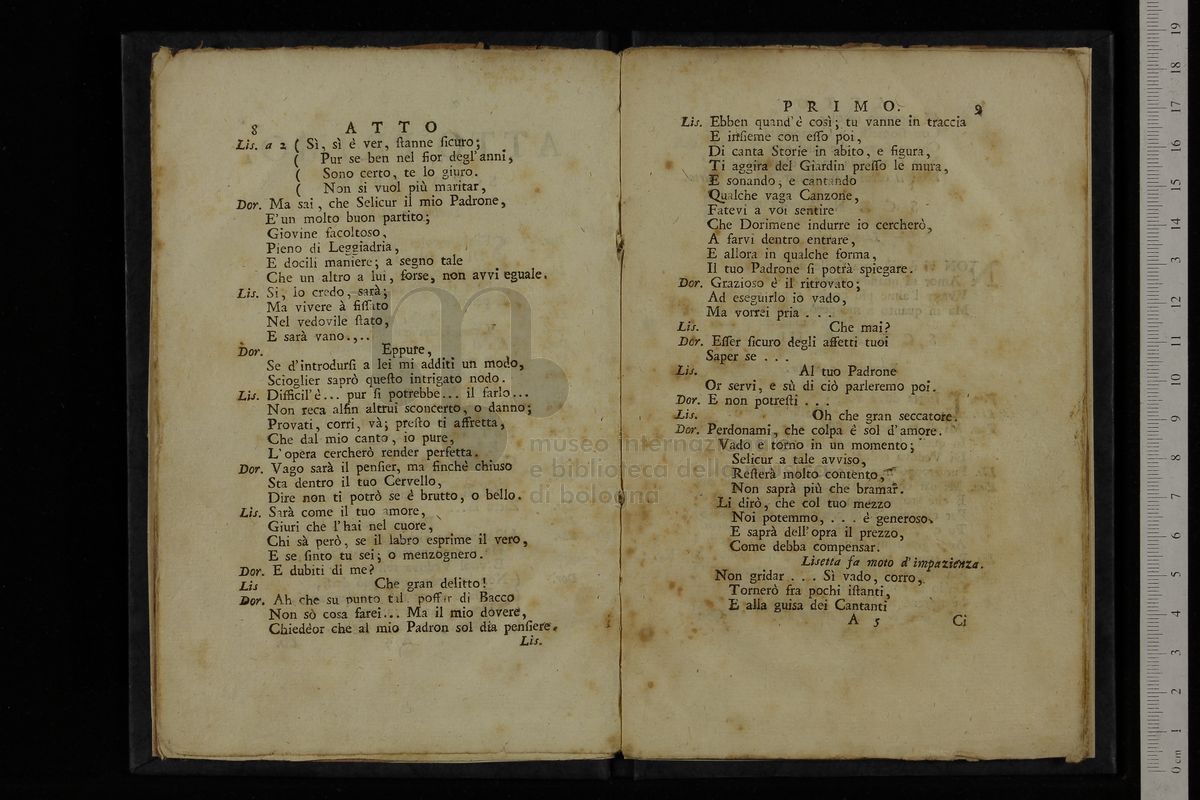 8 ATTO
Lis. a 2 ( Sì, sì è ver, ſtanne ſicuro;
( Pur se ben nel fior degl'anni,
( Sono certo, te lo giuro.
( Non si vuol più maritar,
Dor. Ma sai, che Selicur il mio Padrone,
E'un molto buon partito;
Giovine facoltoso,
Pieno di Leggiadria,
E docili maniere; a segno tale
Che un altro a lui, forse, non avvi eguale.
Lis. Si, io credo, sarà;
Ma vivere à fiſſato
Nel vedovile ſtato,
E sarà vano...
Dor. Eppure,
Se d'introdurſi a lei mi additi un modo,
Scioglier saprò queſto intrigato nodo.
Lis. Difficil'è... pur ſi potrebbe... il farlo...
Non reca alfin altrui sconcerto, o danno;
Provati, corri, và; preſto ti affretta,
Che dal mio canto, io pure,
L'opera cercherò render perfetta.
Dor. Vago sarà il penſier, ma finchè chiuso
Sta dentro il tuo Cervello,
Dire non ti potrò se è brutto, o bello.
Lis. Sarà come il tuo amore,
Giuri che l'hai nel cuore,
Chi sà però, se il labro esprime il vero,
E se finto tu sei; o menzognero.
Dor. E dubiti di me?
Lis Che gran delitto!
Dor. Ah che su punto tal poſſar di Bacco
Non sò cosa farei... Ma il mio dovere,
Chiedèor che al mio Padron sol dia penſiere.
Lis.
PRIMO. 9
Lis. Ebben quand'è così; tu vanne in traccia
E inſieme con eſſo poi,
Di canta Storie in abito, e figura,
Ti aggira del Giardin preſſo le mura,
E sonando, e cantando
Qualche vaga Canzone,
Fatevi a voi sentire
Che Dorimene indurre io cercherò,
A farvi dentro entrare,
E allora in qualche forma,
Il tuo Padrone ſi potrà spiegare.
Dor. Grazioso è il ritrovato;
Ad eseguirlo io vado,
Ma vorrei pria . . .
Lis. Che mai?
Dor. Eſſer ſicuro degli affetti tuoi
Saper se . . .
Lis. Al tuo Padrone
Or servi, e sù di ciò parleremo poi.
Dor. E non potreſti . . .
Lis. Oh che gran seccatore.
Dor. Perdonami, che colpa è sol d'amore.
Vado e torno in un momento;
Selicur a tale avviso,
Reſterà molto contento,
Non saprà più che bramar.
Li dirò, che col tuo mezzo
Noi potemmo, . . . è generoso,
E saprà dell'opra il prezzo,
Come debba compensar.
Lisetta fa moto d'impazienza.
Non gridar . . . Sì vado, corro,
Tornerò fra pochi iſtanti,
E alla guisa dei Cantanti
A 5 Ci
museo internaz
e biblioteca della
di bologna
0 cm 1 2 3 4 5 6 7 8 9 10 11 12 13 14 15 16 17 18 19